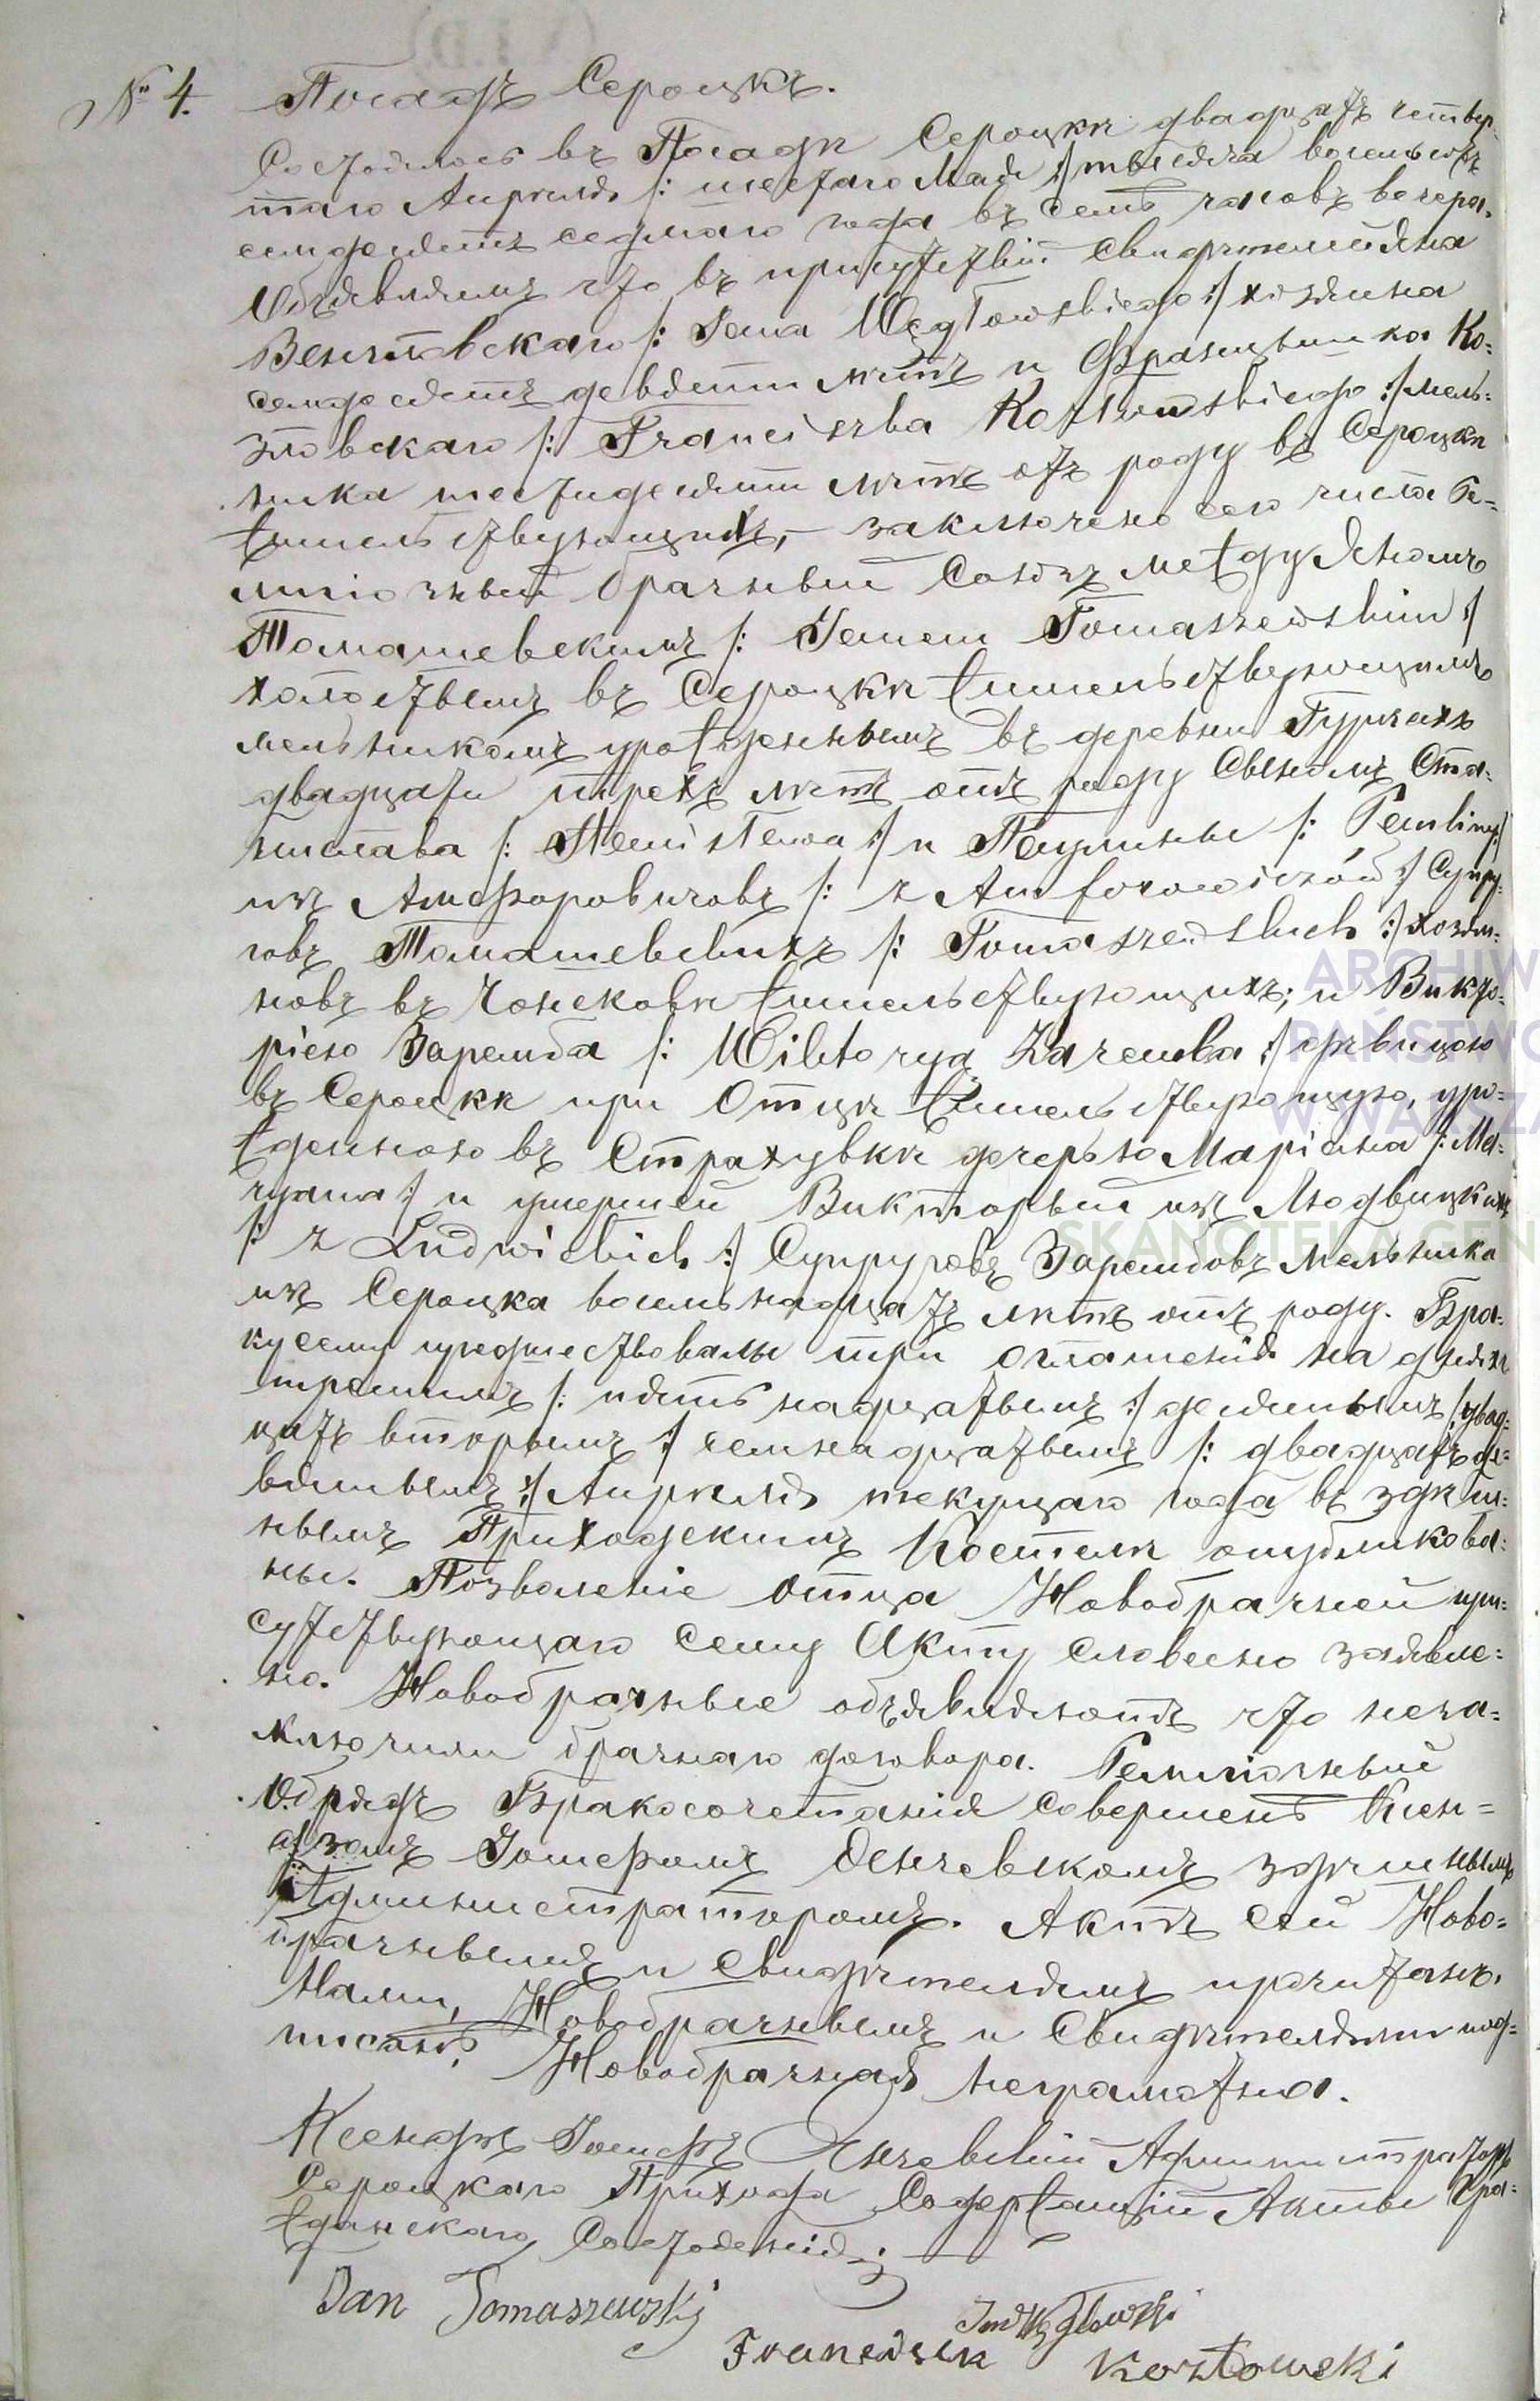 № 4. Посадъ Сероцкъ.
Состоялось въ Посадѣ Сероцкѣ двадцать четвер-
таго Апрѣля /: шестаго Мая :/ тысяча восемьсотъ
семдесятъ седмаго года въ семь часовъ вечера.
Объявляемъ что въ присутствіи Свидѣтелей Яна
Венгловскаго /: Jana Węgłowskiego :/ хозяина
семдесятъ девяти лѣтъ и Францишка Ко-
зловскаго /: Franciszka Kozłowskiego :/ мель-
ника шестидесяти лѣтъ отъ роду въ Сероцкѣ
жительствующихъ, — заключено сего числа Ре-
лигіозный брачный Союзъ между Яномъ
Томашевскимъ /: Janem Tomaszewskim :/
холостымъ въ Сероцкѣ жительствующимъ
мельникомъ урожденнымъ въ деревни Гуркахъ
двадцати трехъ лѣтъ отъ роду Сыномъ Ста-
нислава /: Stanisława :/ и Паулины /: Pauliny :/
изъ Амфоровичовъ /: z Amforowiczów :/ Супру-
говъ Томашевскихъ /: Tomaszewskich :/ хозяи-
новъ въ жительствующихъ; и Викто-
ріею Заремба /: Wiktoryą Zaremba :/ дѣвицею
въ Сероцкѣ при Отцѣ жительствующую, уро-
жденною въ Страхувкѣ дочерью Маріана /: Ma-
ryana :/ и умершей Викторыи изъ Людвицкихъ
/: z Ludwickich :/ Супруговъ Зарембовъ Мельника
изъ Сероцка восемьнадцать лѣтъ отъ роду. Бра-
ку сему предшествовалы три оглашенія на дняхъ
третимъ /: пятьнадцатымъ :/ десятымъ /: двад-
цать вторымъ :/ семнадцатымъ /: двадцать де-
вятымъ :/ Апрѣля текущаго года въ здѣш-
нымъ Приходскимъ Костелѣ опубликова-
ны. Позволеніе отца Новобрачней при-
сутствующаго сему Акту словесно заявле-
но. Новобрачные объявляютъ что неза-
ключили брачнаго договора. Религіозный
Обрядъ Бракосочетанія совершенъ Ксен-
дзомъ Іосефомъ здѣшнымъ
Администраторомъ. Актъ сей Ново-
брачнымъ и Свидѣтелямъ прочитанъ.
Нами, Новобрачнымъ и Свидѣтелями под-
писанъ, Новобрачная неграмотна.
Ксендзъ Іосефъ Администраторъ
Сероцкаго Прихода Содержащій Акты Гра-
жданскаго Состоянія
Jan Tomaszewski
Jan Węglowski
Franciszek Kozłowski
ARCHIW
PAŃSTWO
W WARSZA
SKANOTEKA GEN